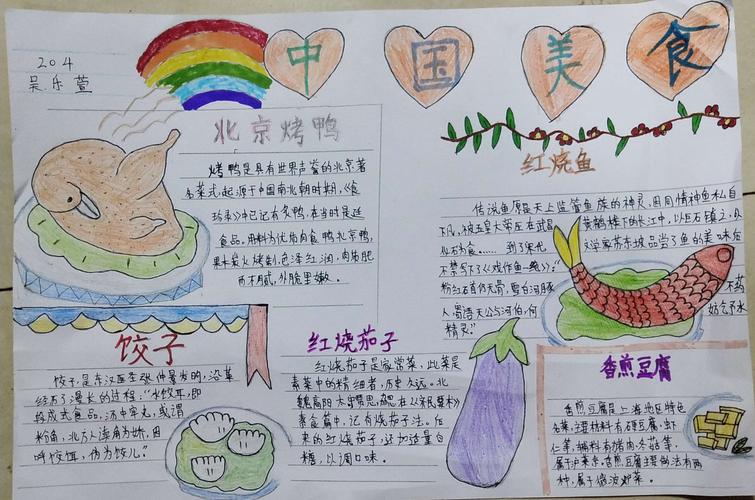 204
吴乐萱
中国美食
北京烤鸭
烤鸭是具有世界声誉的北京著
名菜式，起源于中国南北朝时期，《食
珍录》中已记有炙鸭，在当时是廷
食品，用料为优质肉食鸭北京鸭，
果木炭火烤制，色泽红润，肉质肥
而不腻，外脆里嫩。
红烧鱼
传说鱼原是天上监管鱼族的神灵，因同情神鱼私自
下凡，被玉皇大帝压在武昌
黄鹤楼下的长江中，以巨石镇之，从
此石为食……到了宋代，
文学家苏东坡品尝了鱼的美味后
不禁写下《戏作鱼一绝》：“
粉红石首仍无骨，雪白河豚
不药
人，寄语天公与河伯，何
妨乞予水
精灵”
饺子
饺子是东汉医圣张仲景发明，沿革
经历了漫长的过程：“水饺耳，即
段成式食品，汤中牢丸，或谓
粉角，北方人读角为娇，因
呼饺饵，伪为饺儿”
红烧茄子
红烧茄子是家常菜，此菜是
素菜中的精细者，历史久远。北
魏高阳太守贾思勰在《齐民要术》
素食篇中，记有烧茄子法。后
来的红烧茄子，还加适量白
糖，以调口味。
香煎豆腐
香煎豆腐是上海地区特色
名菜，主要材料有硬豆腐、虾
仁等，辅料有猪肉、冬菇等，
属于沪菜系。香煎豆腐主要做法有两
种，属于